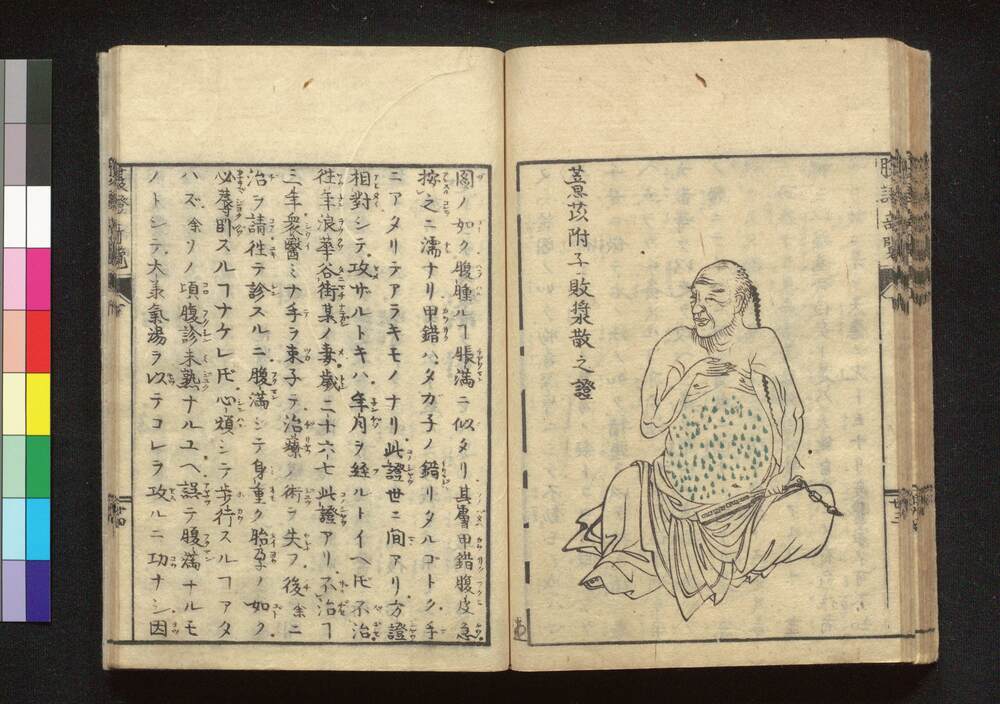 腹證奇覽
廿三
薏苡附子敗漿散之證
圖ノ如ク腹腫ルヿ脹満ニ似タリ其膚甲錯腹皮急
按之ニ濡ナリ甲錯ハタカ子ノ錯リタルゴトク手
ニアタリテアラキモノナリ此證世ニ間アリ方證
相對シテ攻ザルトキハ年月ヲ經ルトイヘ𪜈不治
徃年浪華谷街某ノ妻歳二十六七此證アリ不治ヿ
三年衆醫ミナ手ヲ束子テ治療ノ術ヲ失フ後余ニ
治ヲ請徃テ診スルニ腹満シテ身重ク胎孕ノ如ク
必蓐卧スルヿナケレ𪜈心煩シテ歩行スルヿアタ
ハズ余ソノ頃腹診未熟ナルユヘ誤テ腹満ナルモ
ノトシテ大承氣湯ヲ以テコレヲ攻ルニ功ナシ因
腹證奇覽
廿四